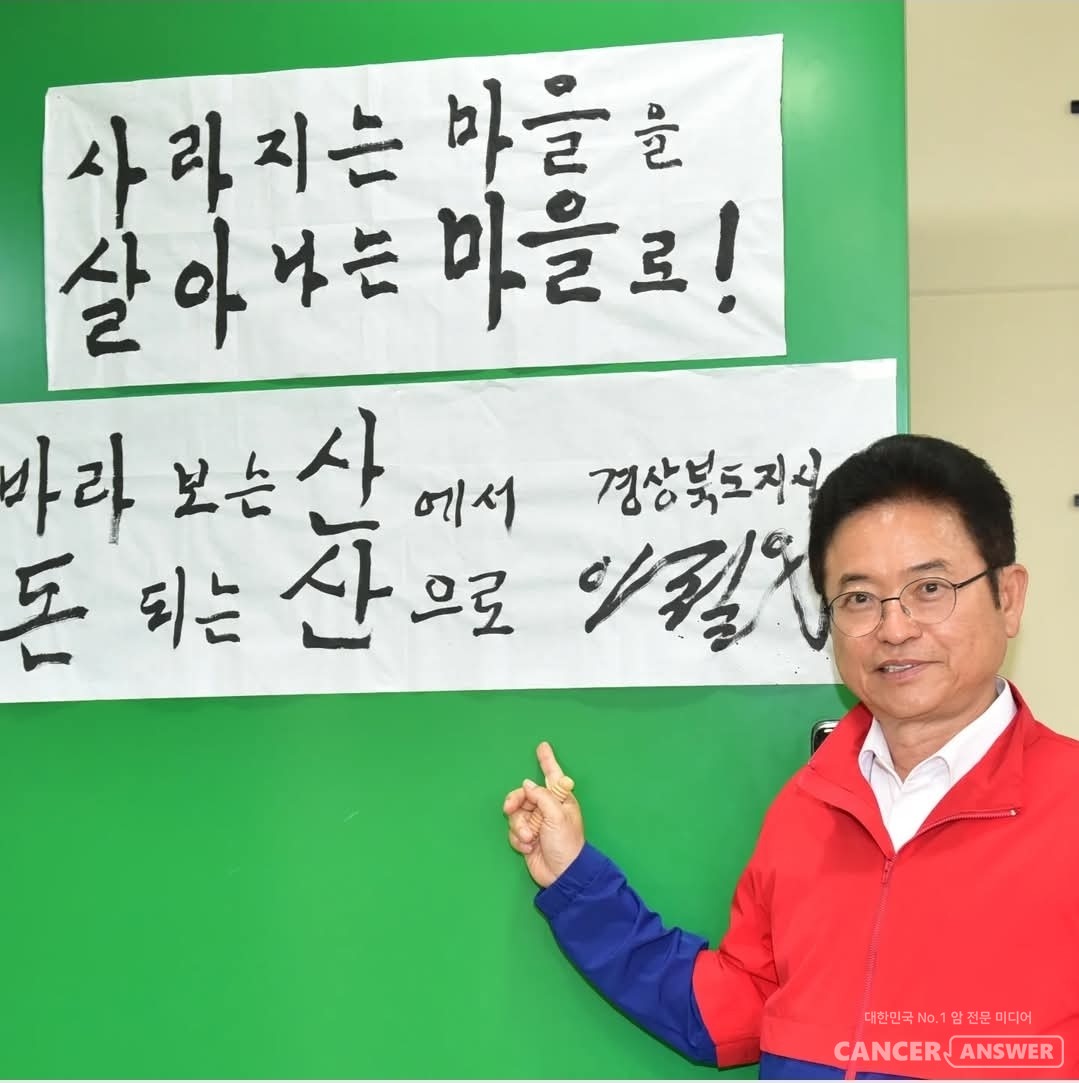 사라지는 마을을
살아나는 마을로!
바라보는 산에서
돈 되는 산으로
경상북도지사
이철우
대한민국 No.1 암 전문 미디어
CANCER ANSWER